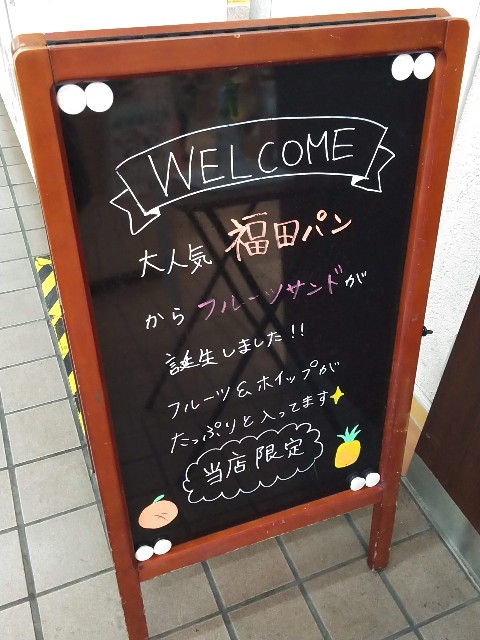 WELCOME
大人気 福田パン
から フルーツサンドが
誕生しました!!
フルーツ&ホイップが
たっぷりと入ってます
当店限定